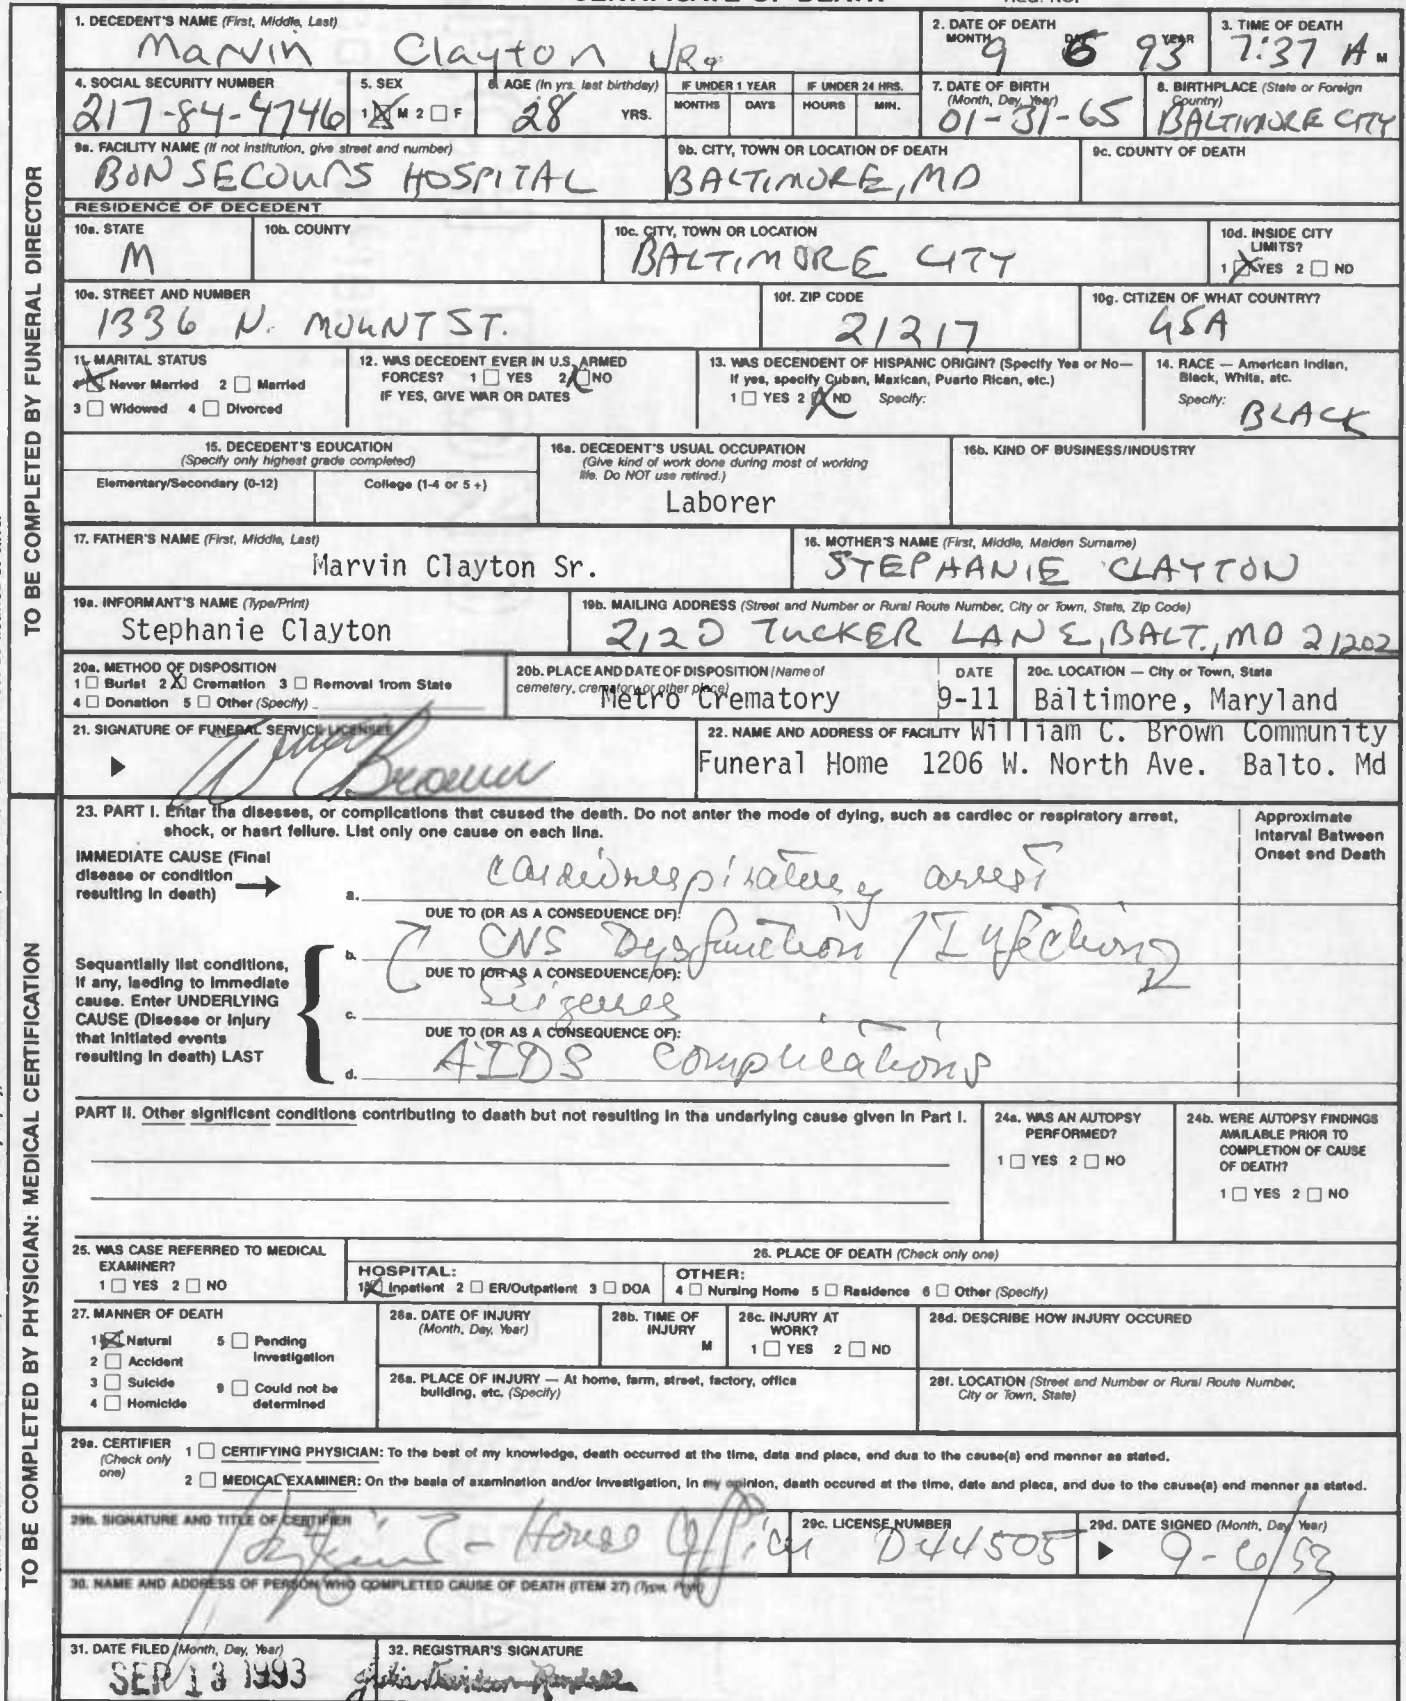 1. DECEDENT'S NAME (First, Middle, Last)
Marvin Clayton JR.
2. DATE OF DEATH
MONTH DAY YEAR
9 6 93
3. TIME OF DEATH
7:37 A M
4. SOCIAL SECURITY NUMBER
217-84-4746
5. SEX
1 M 2 F
6. AGE (In yrs. last birthday)
28 YRS.
IF UNDER 1 YEAR
MONTHS DAYS
IF UNDER 24 HRS.
HOURS MIN.
7. DATE OF BIRTH
(Month, Day, Year)
01-31-65
8. BIRTHPLACE (State or Foreign
Country)
BALTIMORE CITY
9a. FACILITY NAME (If not institution, give street and number)
BON SECOURS HOSPITAL
9b. CITY, TOWN OR LOCATION OF DEATH
BALTIMORE, MD
9c. COUNTY OF DEATH
RESIDENCE OF DECEDENT
10a. STATE
M
10b. COUNTY
10c. CITY, TOWN OR LOCATION
BALTIMORE CITY
10d. INSIDE CITY
LIMITS?
1 YES 2 NO
10e. STREET AND NUMBER
1336 N. MOUNT ST.
10f. ZIP CODE
21217
10g. CITIZEN OF WHAT COUNTRY?
USA
11. MARITAL STATUS
Never Married 2 Married
3 Widowed 4 Divorced
12. WAS DECEDENT EVER IN U.S. ARMED
FORCES? 1 YES 2 NO
IF YES, GIVE WAR OR DATES
13. WAS DECENDENT OF HISPANIC ORIGIN? (Specify Yes or No—
If yes, specify Cuban, Maxican, Puarto Rican, etc.)
1 YES 2 NO Specify:
14. RACE — American Indian,
Black, White, atc.
Specify:
BLACK
15. DECEDENT'S EDUCATION
(Specify only highest grade completed)
Elementary/Secondary (0-12) College (1-4 or 5+)
16a. DECEDENT'S USUAL OCCUPATION
(Give kind of work done during most of working
life. Do NOT use retired.)
Laborer
16b. KIND OF BUSINESS/INDUSTRY
17. FATHER'S NAME (First, Middle, Last)
Marvin Clayton Sr.
16. MOTHER'S NAME (First, Middle, Maiden Surname)
STEPHANIE CLAYTON
19a. INFORMANT'S NAME (Type/Print)
Stephanie Clayton
19b. MAILING ADDRESS (Street and Number or Rural Route Number, City or Town, State, Zip Code)
2120 TUCKER LANE, BALT., MD 21202
20a. METHOD OF DISPOSITION
1 Burial 2 X Cremation 3 Removal from State
4 Donation 5 Other (Specify)
20b. PLACE AND DATE OF DISPOSITION (Name of
cemetery, crematory or other place)
Metro Crematory
DATE
9-11
20c. LOCATION — City or Town, State
Baltimore, Maryland
21. SIGNATURE OF FUNERAL SERVICE LICENSEE
Brown
22. NAME AND ADDRESS OF FACILITY William C. Brown Community
Funeral Home 1206 W. North Ave. Balto. Md
TO BE COMPLETED BY FUNERAL DIRECTOR
23. PART I. Enter tha disesses, or complications that csused the death. Do not anter the mode of dying, such as cardiec or respiratory arrest,
shock, or hasrt fellure. List only one cause on each lina.
Approximate
Interval Between
Onset and Death
IMMEDIATE CAUSE (Final
disease or condition
resulting in death)
a. Cardiorespiratory arrest
DUE TO (OR AS A CONSEQUENCE OF):
b. CNS Dysfunction / Infection
DUE TO (OR AS A CONSEQUENCE OF):
c. Seizures
DUE TO (OR AS A CONSEQUENCE OF):
d. AIDS complications
Sequantially list conditions,
if any, laeding to immediate
cause. Enter UNDERLYING
CAUSE (Disesse or injury
that initiated events
resulting in death) LAST
PART II. Other significsnt conditions contributing to daath but not resulting in tha underlying cause given in Part I.
24a. WAS AN AUTOPSY
PERFORMED?
1 YES 2 NO
24b. WERE AUTOPSY FINDINGS
AVAILABLE PRIOR TO
COMPLETION OF CAUSE
OF DEATH?
1 YES 2 NO
25. WAS CASE REFERRED TO MEDICAL
EXAMINER?
1 YES 2 NO
26. PLACE OF DEATH (Check only one)
HOSPITAL:
1 Inpatient 2 ER/Outpatient 3 DOA
OTHER:
4 Nursing Home 5 Rasidence 6 Other (Specify)
27. MANNER OF DEATH
1 Natural 5 Pending
Investigation
2 Accident
3 Suicide 9 Could not be
determined
4 Homicide
28a. DATE OF INJURY
(Month, Day, Year)
28b. TIME OF
INJURY
M
28c. INJURY AT
WORK?
1 YES 2 NO
28d. DESCRIBE HOW INJURY OCCURED
26a. PLACE OF INJURY — At home, farm, street, factory, offica
building, etc. (Specify)
28f. LOCATION (Street and Number or Rural Route Number,
City or Town, State)
29a. CERTIFIER
(Check only
one)
1 CERTIFYING PHYSICIAN: To the best of my knowledge, death occurred at the time, data and place, end dua to the cause(a) end menner as stated.
2 MEDICAL EXAMINER: On the basis of axamination and/or investigation, in my opinion, daath occured at the time, date and placa, and due to the cause(a) end menner as stated.
29b. SIGNATURE AND TITLE OF CERTIFIER
- House Officer
29c. LICENSE NUMBER
D44505
29d. DATE SIGNED (Month, Day, Year)
9-6/93
30. NAME AND ADDRESS OF PERSON WHO COMPLETED CAUSE OF DEATH (ITEM 27) (Type, Print)
31. DATE FILED (Month, Day, Year)
SEP 13 1993
32. REGISTRAR'S SIGNATURE
TO BE COMPLETED BY PHYSICIAN: MEDICAL CERTIFICATION